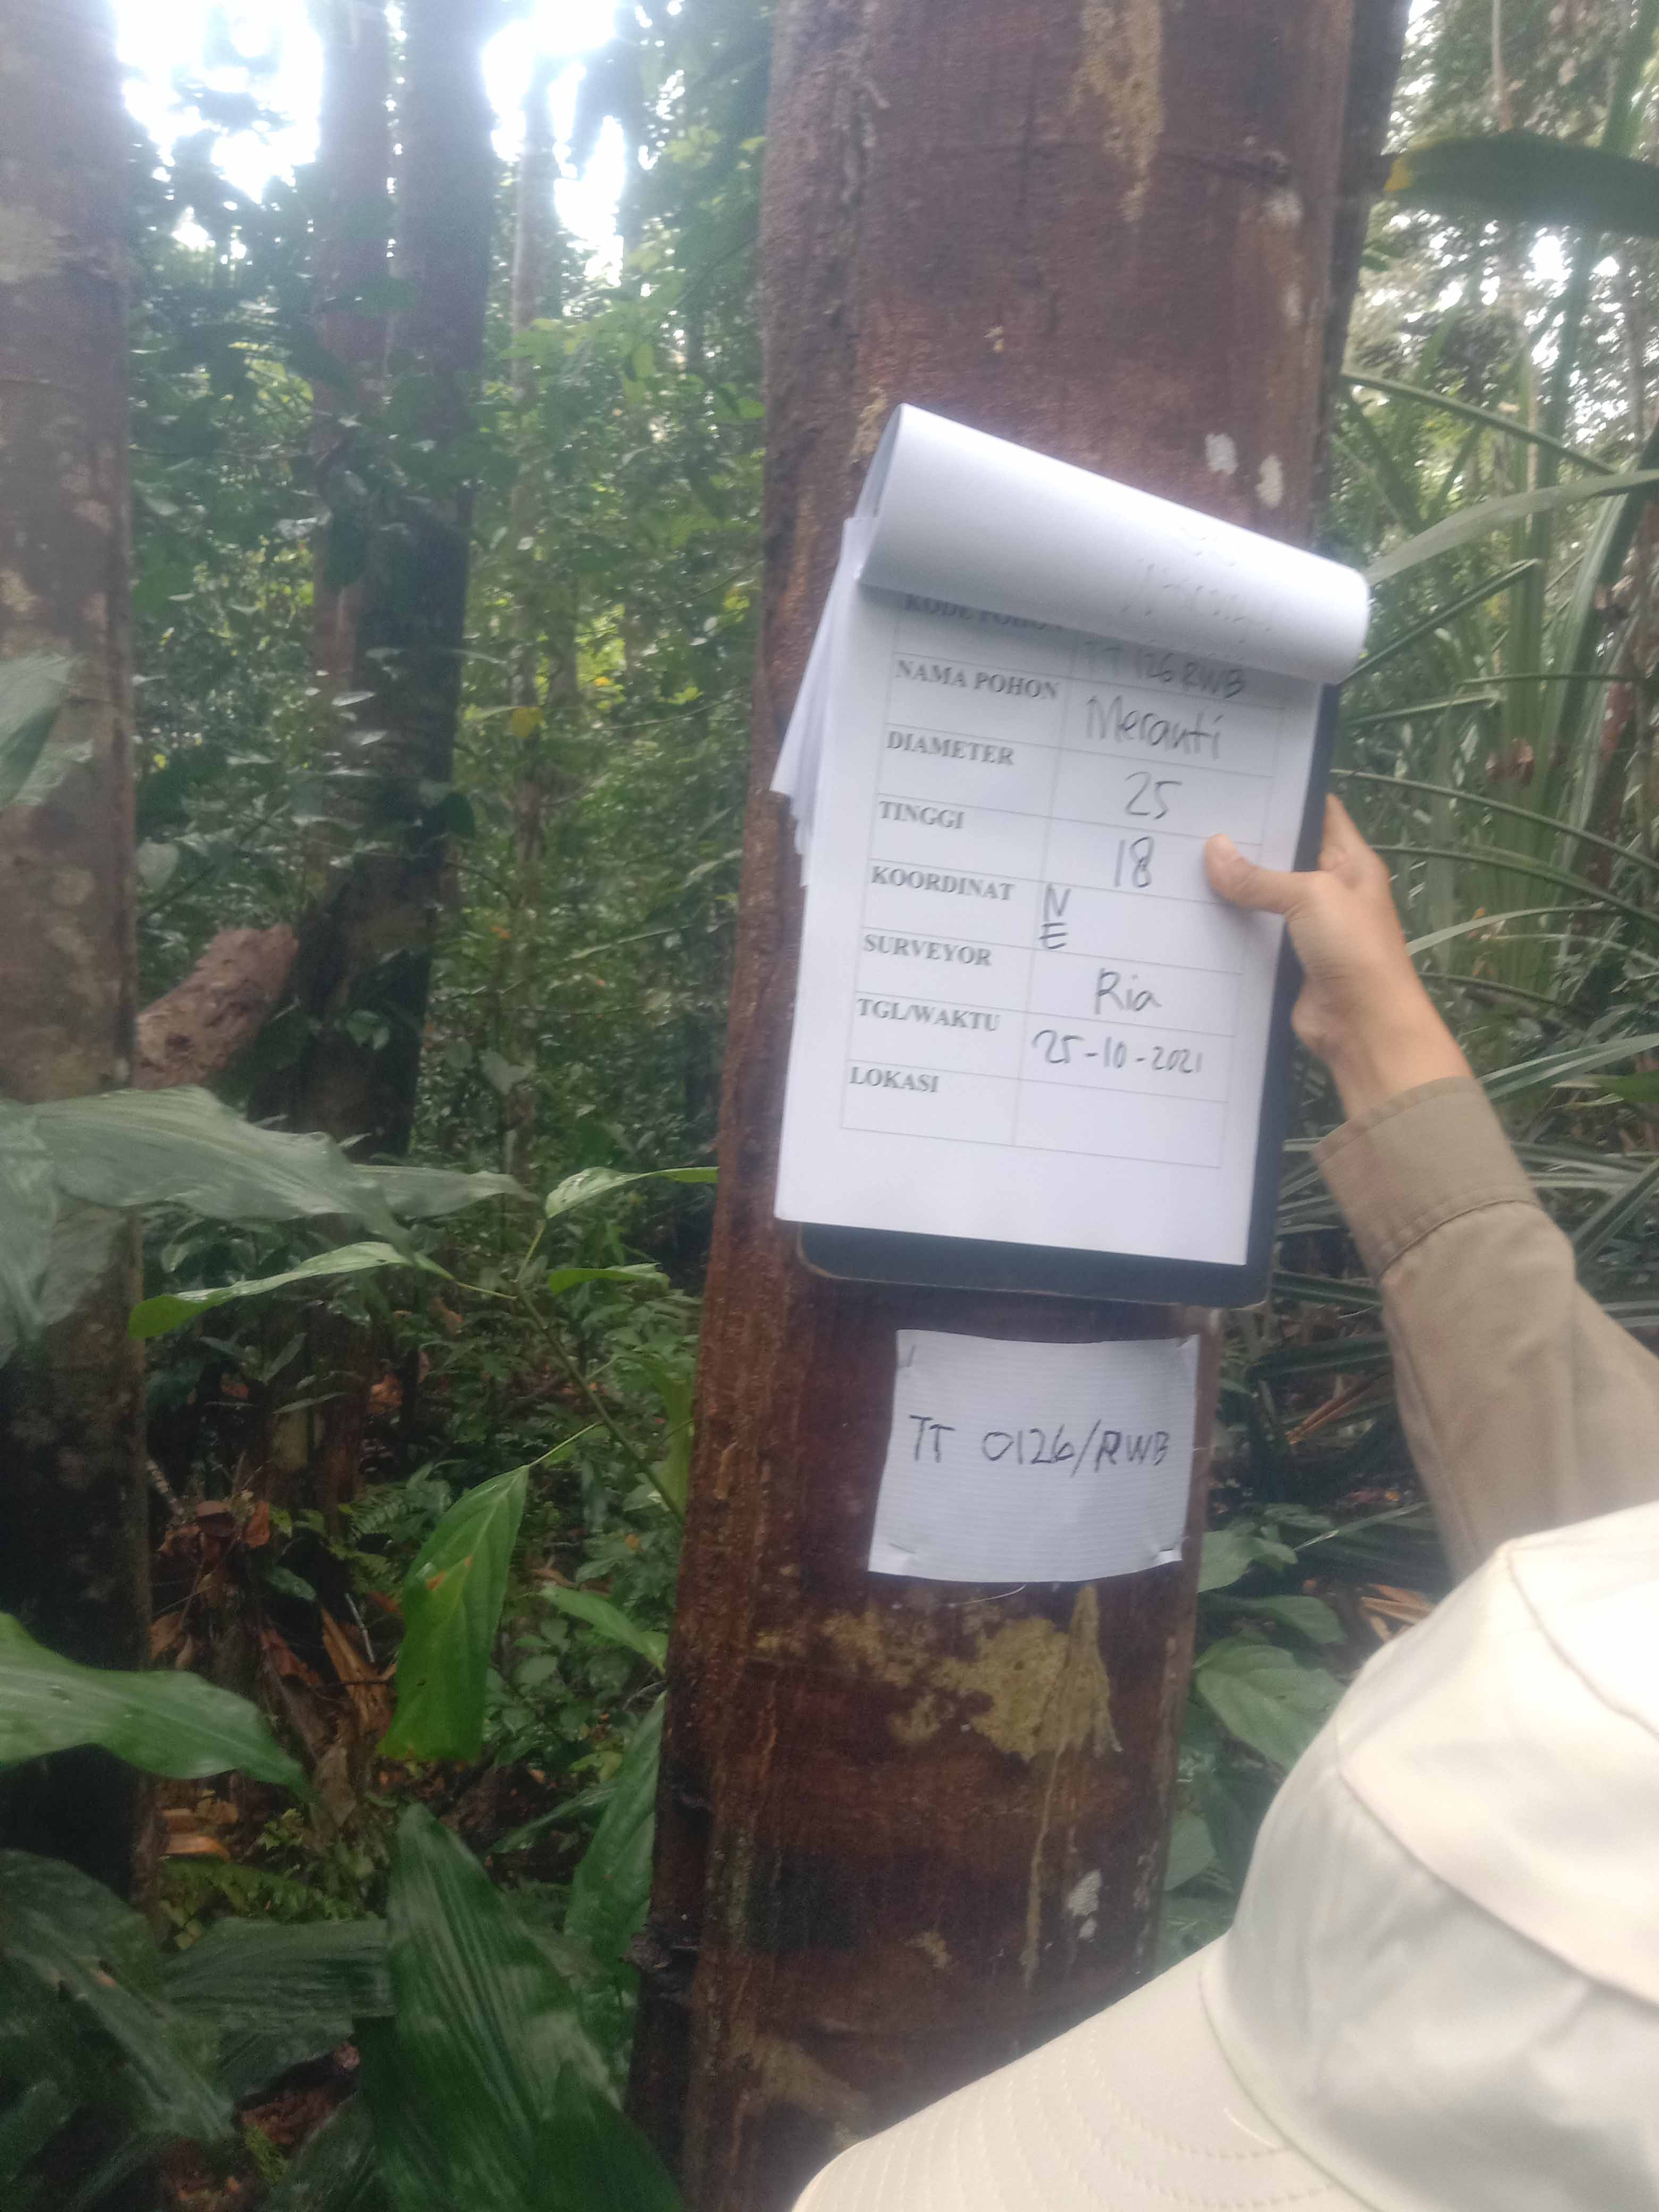 KODE POHON TT 126 RWB
NAMA POHON Meranti
DIAMETER 25
TINGGI 18
KOORDINAT N
E
SURVEYOR Ria
TGL/WAKTU 25-10-2021
LOKASI
TT 0126/RWB